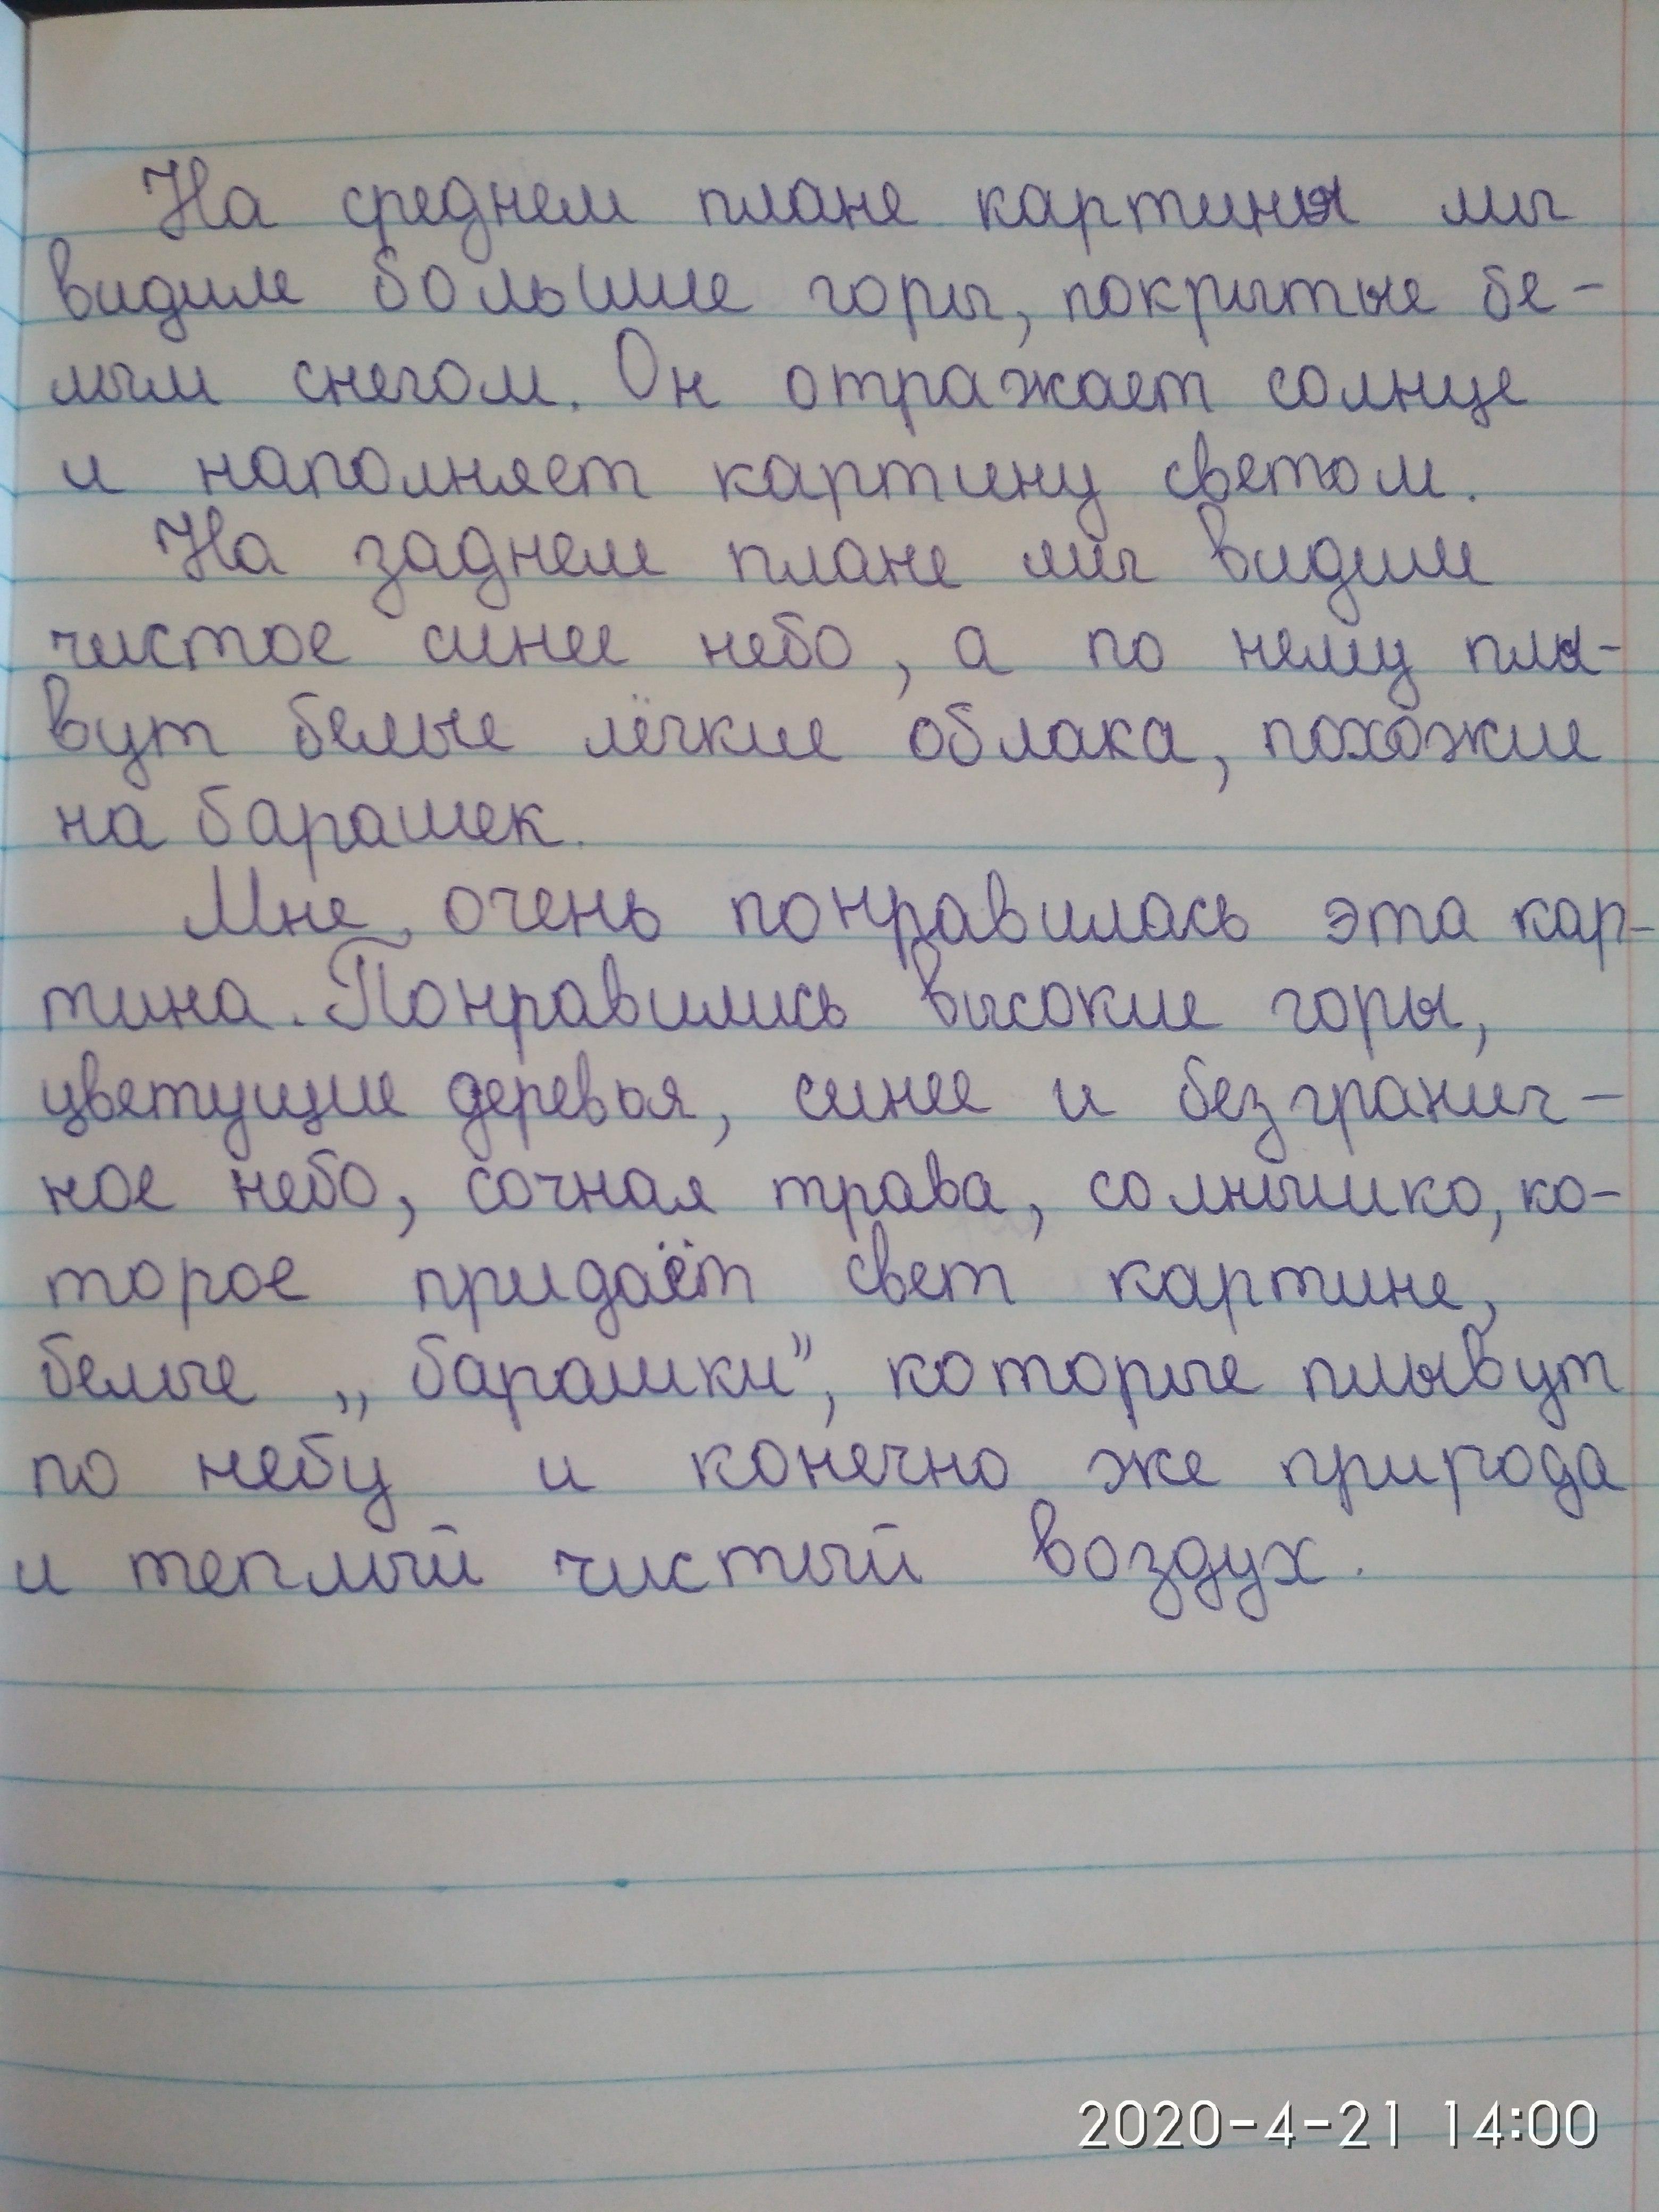 На среднем плане картины мы
видим большие горы, покрытые бе-
лым снегом. Он отражает солнце
и наполняет картину светом.
На заднем плане мы видим
чистое синее небо, а по нему плы-
вут белые лёгкие облака, похожие
на барашек.
Мне очень понравилась эта кар-
тина. Понравились высокие горы,
цветущие деревья, синее и безгранич-
ное небо, сочная трава, солнышко, ко-
торое придаёт свет картине,
белые „барашки”, которые плывут
по небу и конечно же природа
и теплый чистый воздух.
2020-4-21 14:00